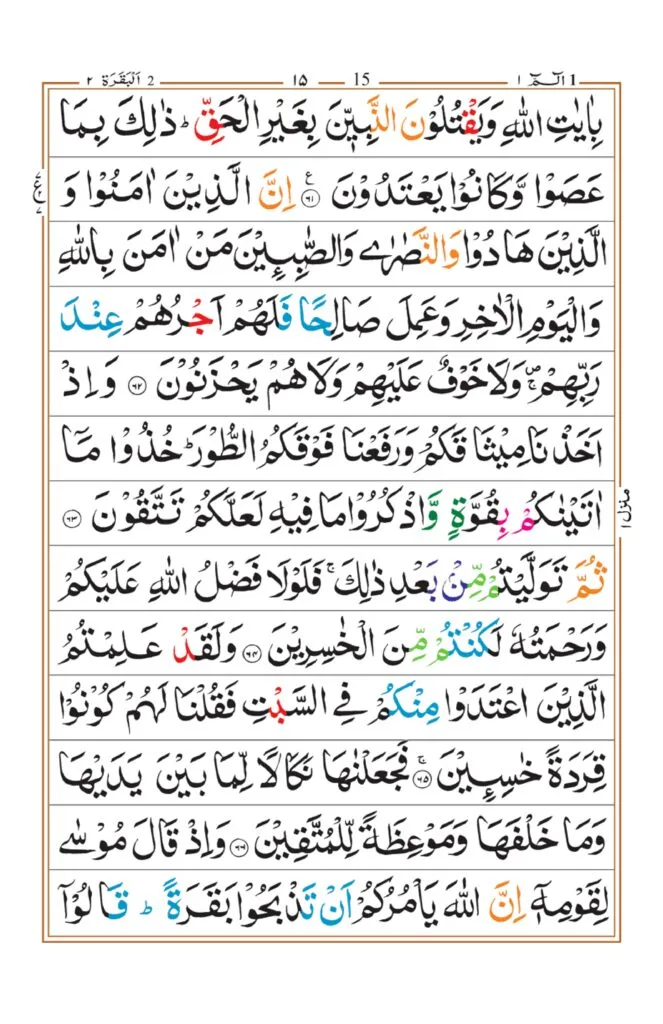 1 الٓمّٓ ۱ 15 ۱۵ 2 اَلْبَقَرَة ۲
بِاٰيٰتِ اللّٰهِ وَيَقْتُلُوْنَ النَّبِيّٖنَ بِغَيْرِ الْحَقِّ ؕ ذٰلِكَ بِمَا
عَصَوْا وَّكَانُوْا يَعْتَدُوْنَ ۟ع ۶۱ اِنَّ الَّذِيْنَ اٰمَنُوْا وَ
الَّذِيْنَ هَادُوْا وَالنَّصٰرٰى وَالصّٰبِـِٕيْنَ مَنْ اٰمَنَ بِاللّٰهِ
وَالْيَوْمِ الْاٰخِرِ وَعَمِلَ صَالِحًا فَلَهُمْ اَجْرُهُمْ عِنْدَ
رَبِّهِمْ ۪ۚ وَلَا خَوْفٌ عَلَيْهِمْ وَلَا هُمْ يَحْزَنُوْنَ ۶۲ وَاِذْ
اَخَذْنَا مِيْثَاقَكُمْ وَرَفَعْنَا فَوْقَكُمُ الطُّوْرَ ؕ خُذُوْا مَاۤ
اٰتَيْنٰكُمْ بِقُوَّةٍ وَّاذْكُرُوْا مَا فِيْهِ لَعَلَّكُمْ تَتَّقُوْنَ ۶۳
منزل ۱
ثُمَّ تَوَلَّيْتُمْ مِّنْۢ بَعْدِ ذٰلِكَ ۚ فَلَوْلَا فَضْلُ اللّٰهِ عَلَيْكُمْ
وَرَحْمَتُهٗ لَكُنْتُمْ مِّنَ الْخٰسِرِيْنَ ۶۴ وَلَقَدْ عَلِمْتُمُ
الَّذِيْنَ اعْتَدَوْا مِنْكُمْ فِي السَّبْتِ فَقُلْنَا لَهُمْ كُوْنُوْا
قِرَدَةً خٰسِـِٕيْنَ ۚ ۶۵ فَجَعَلْنٰهَا نَكَالًا لِّمَا بَيْنَ يَدَيْهَا
وَمَا خَلْفَهَا وَمَوْعِظَةً لِّلْمُتَّقِيْنَ ۶۶ وَاِذْ قَالَ مُوْسٰى
لِقَوْمِهٖۤ اِنَّ اللّٰهَ يَاْمُرُكُمْ اَنْ تَذْبَحُوْا بَقَرَةً ؕ قَالُوْۤا